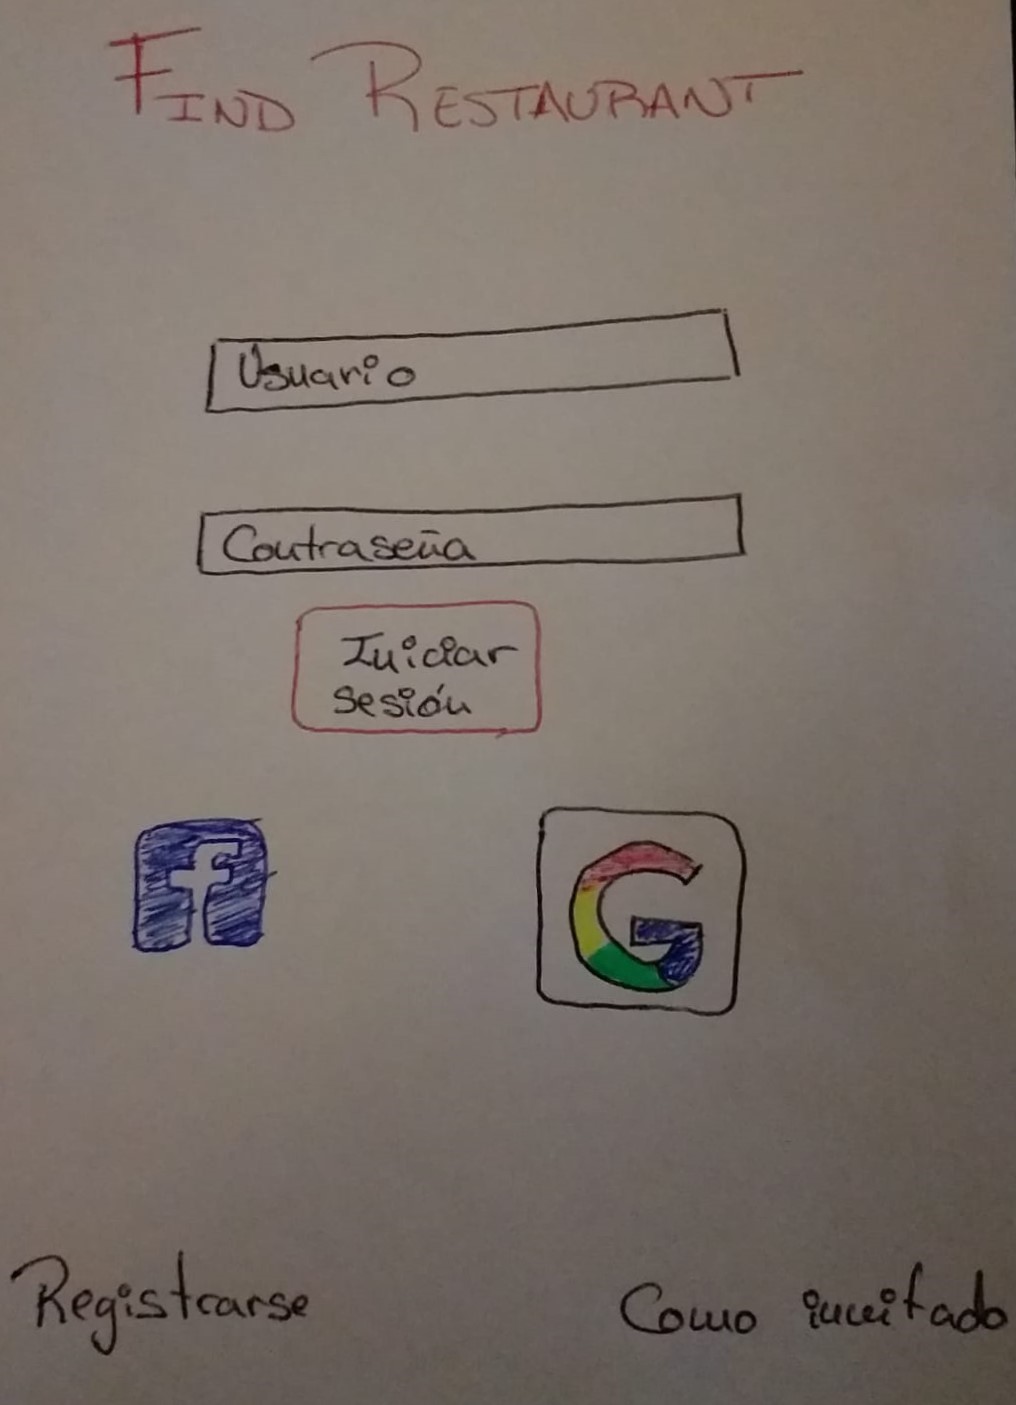 FIND RESTAURANT
Usuario
Contraseña
Iniciar
sesión
f
G
Registrarse
Como invitado